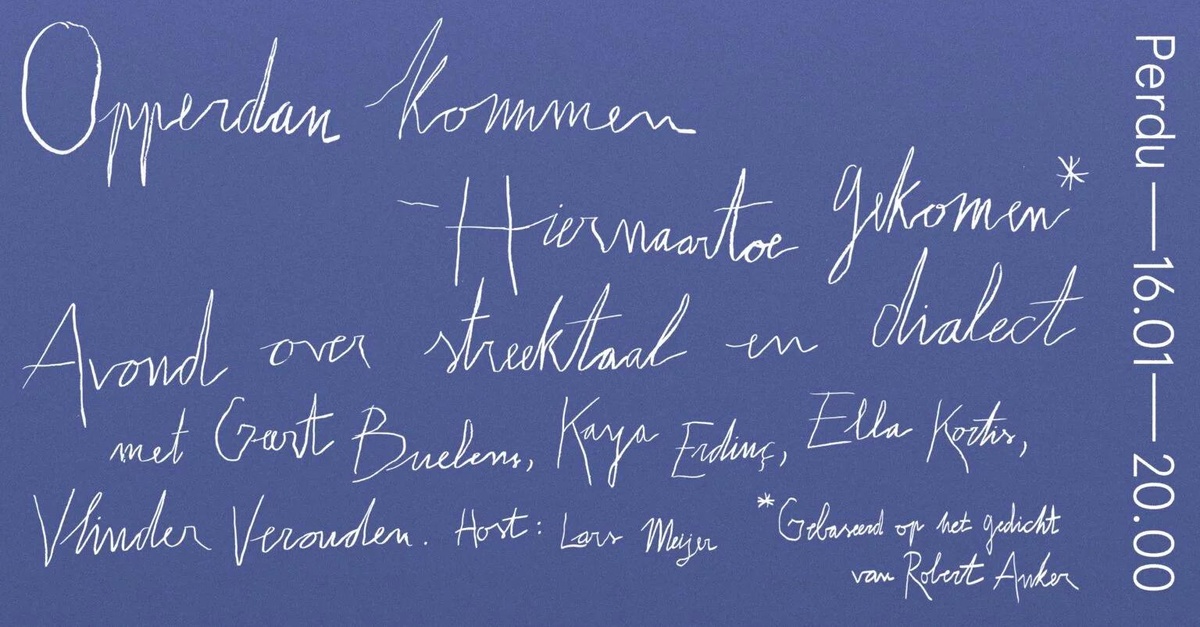 Opperdan kommen
– Hiernaartoe gekomen*
Avond over streektaal en dialect
met Geert Buelens, Kaya Erdinç, Ella Kortis,
Vlinder Verouden. Host: Lars Meijer
*Gebaseerd op het gedicht
van Robert Anker
Perdu — 16.01 — 20.00